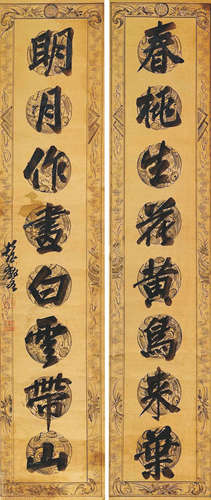 春桃生花黄鳥来葉
明月作畫白雲帶山